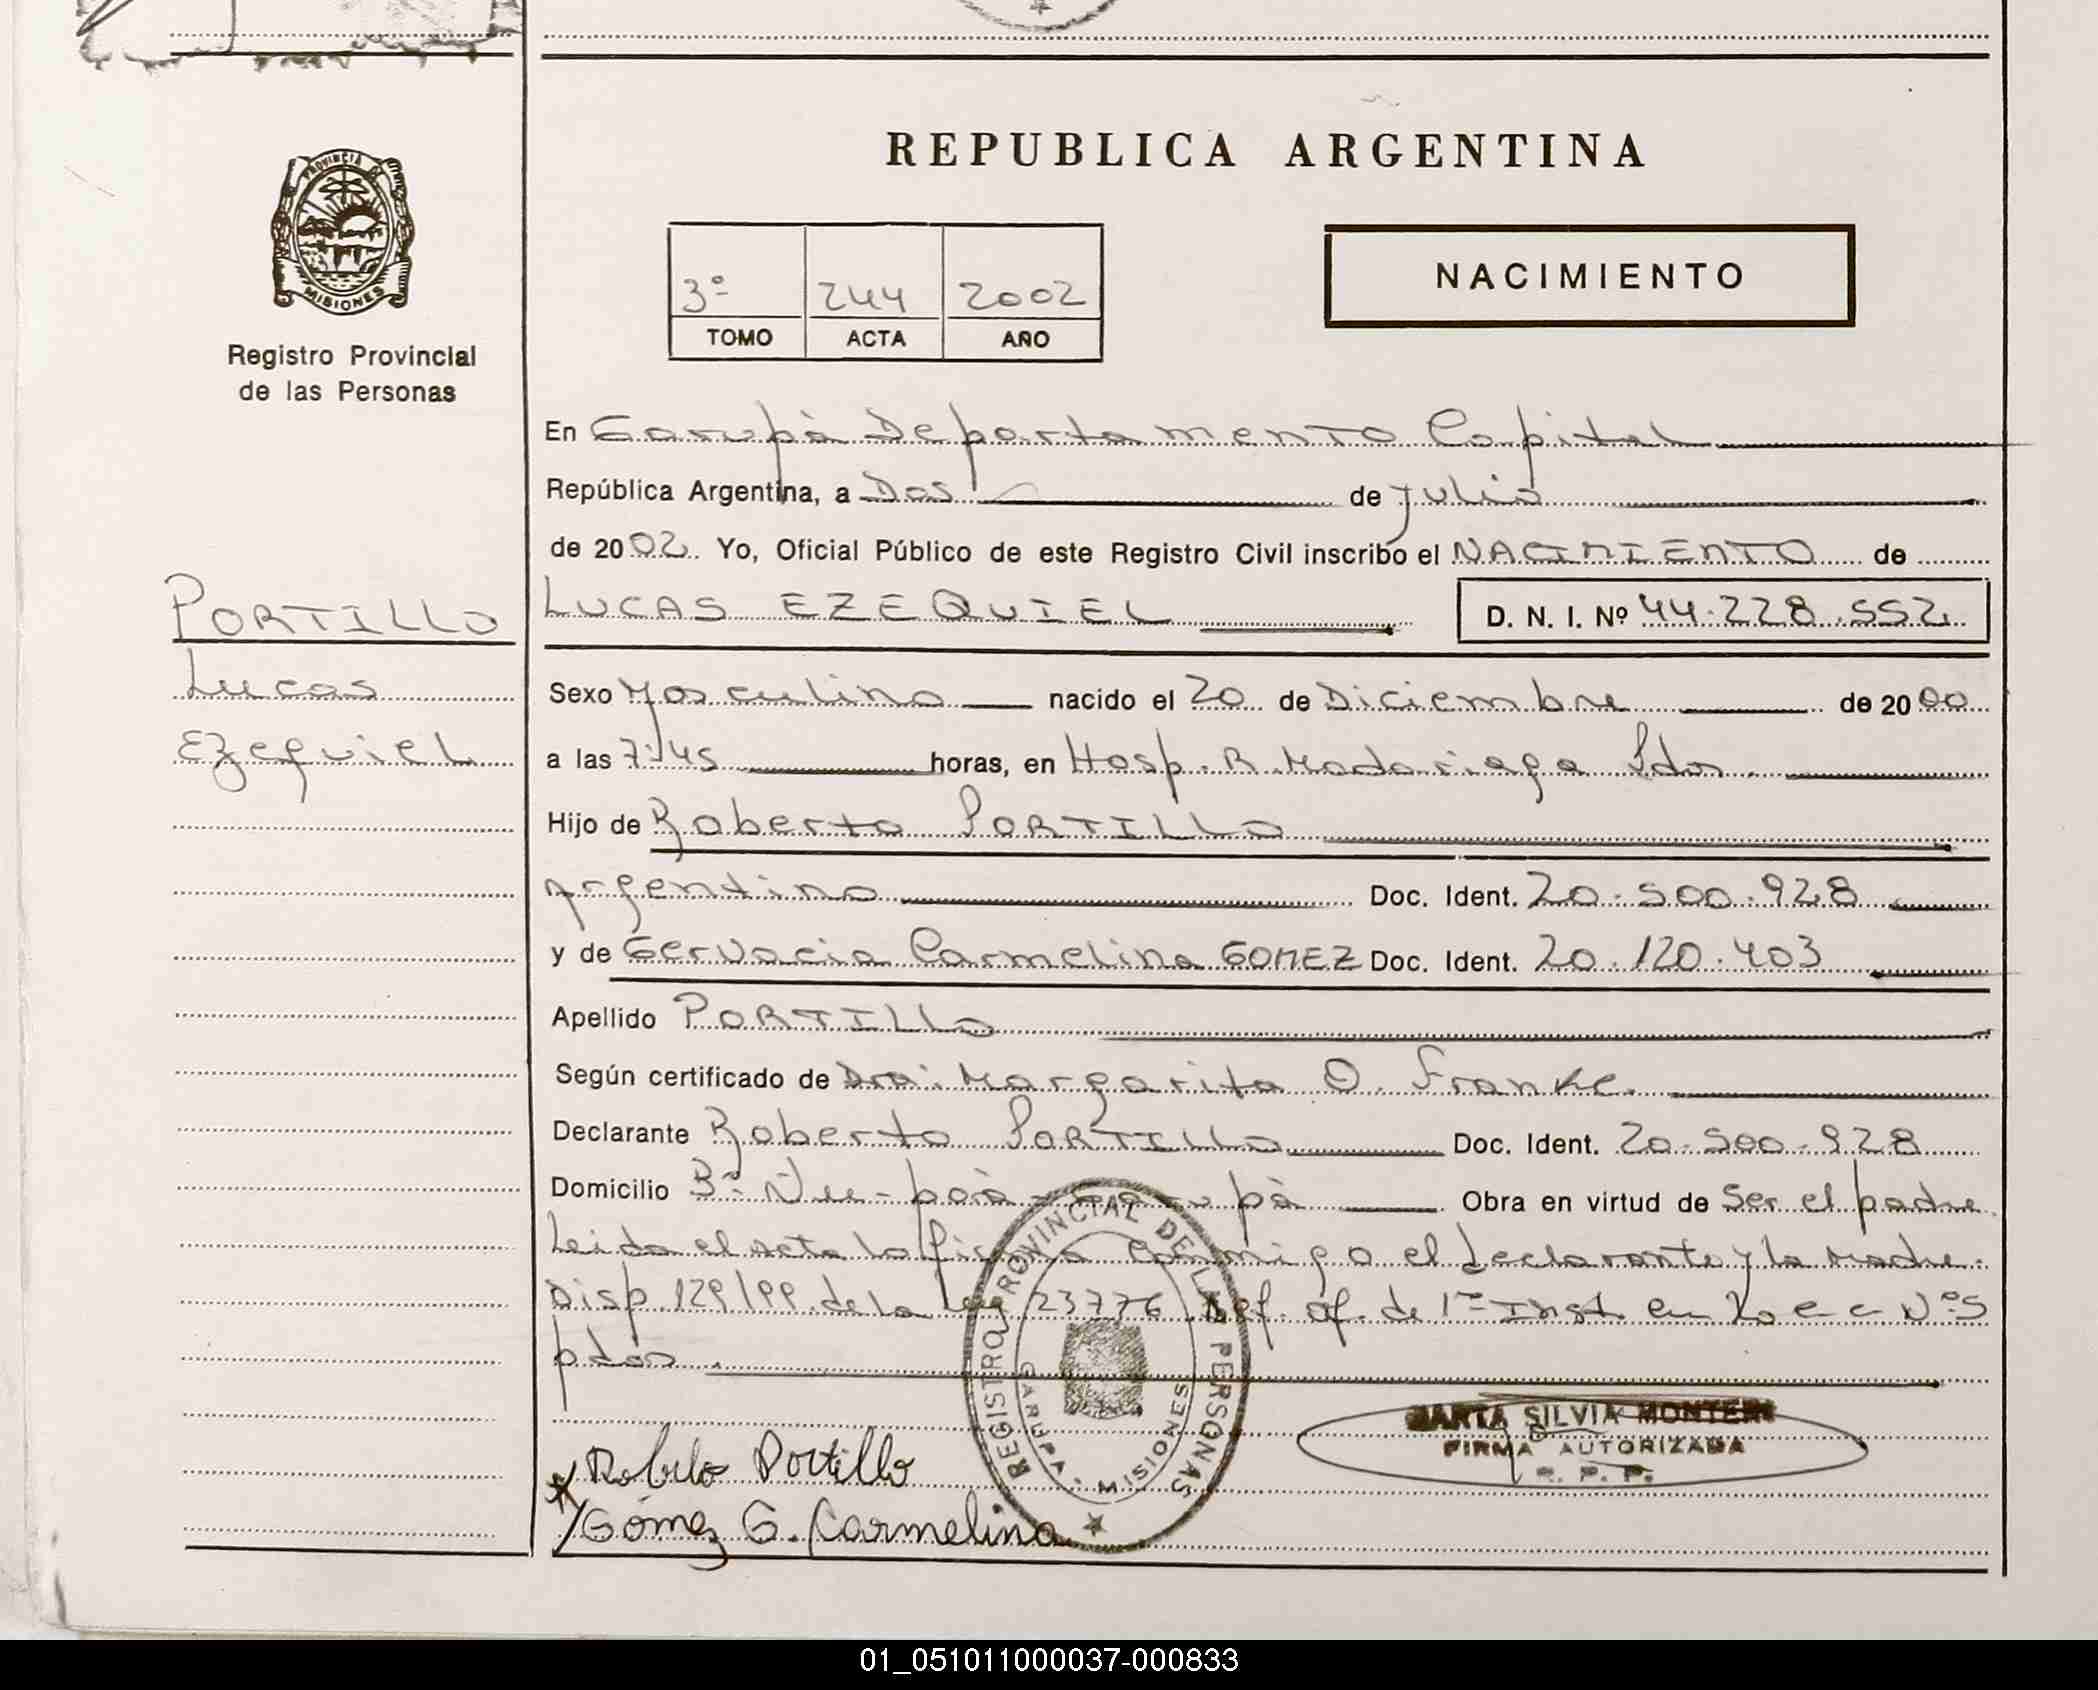 REPUBLICA ARGENTINA
PROVINCIA DE
MISIONES
Registro Provincial
de las Personas
3º 244 2002
TOMO ACTA AÑO
NACIMIENTO
En Garupà Departamento Capital
República Argentina, a Dos de Julio
de 2002 Yo, Oficial Público de este Registro Civil inscribo el NACIMIENTO de
PORTILLO
Lucas
Ezequiel
LUCAS EZEQUIEL D. N. I. Nº 44.228.552
Sexo Masculino nacido el 20 de Diciembre de 2000
a las 7:45 horas, en Hosp. R. Madariaga Pdas.
Hijo de Roberto PORTILLO
Argentino Doc. Ident. 20.500.928
y de Gervacia Carmelina GOMEZ Doc. Ident. 20.120.403
Apellido PORTILLO
Según certificado de Dra. Margarita O. Franke.
Declarante Roberto PORTILLO Doc. Ident. 20.500.928
Domicilio Bº Ñu-porà - Garupà Obra en virtud de Ser el padre.
Leida el acta la firma conmigo el declarante y la Madre.
Disp. 129/99 de la Ley 23776 Def. of. de 1ra Inst. en lo c c Nº 5
pdas.
REGISTRO PROVINCIAL DE LAS PERSONAS
GARUPA - MISIONES
MARTA SILVIA MONTERO
FIRMA AUTORIZADA
R. P. P.
Roberto Portillo
Gómez G. Carmelina
01_051011000037-000833